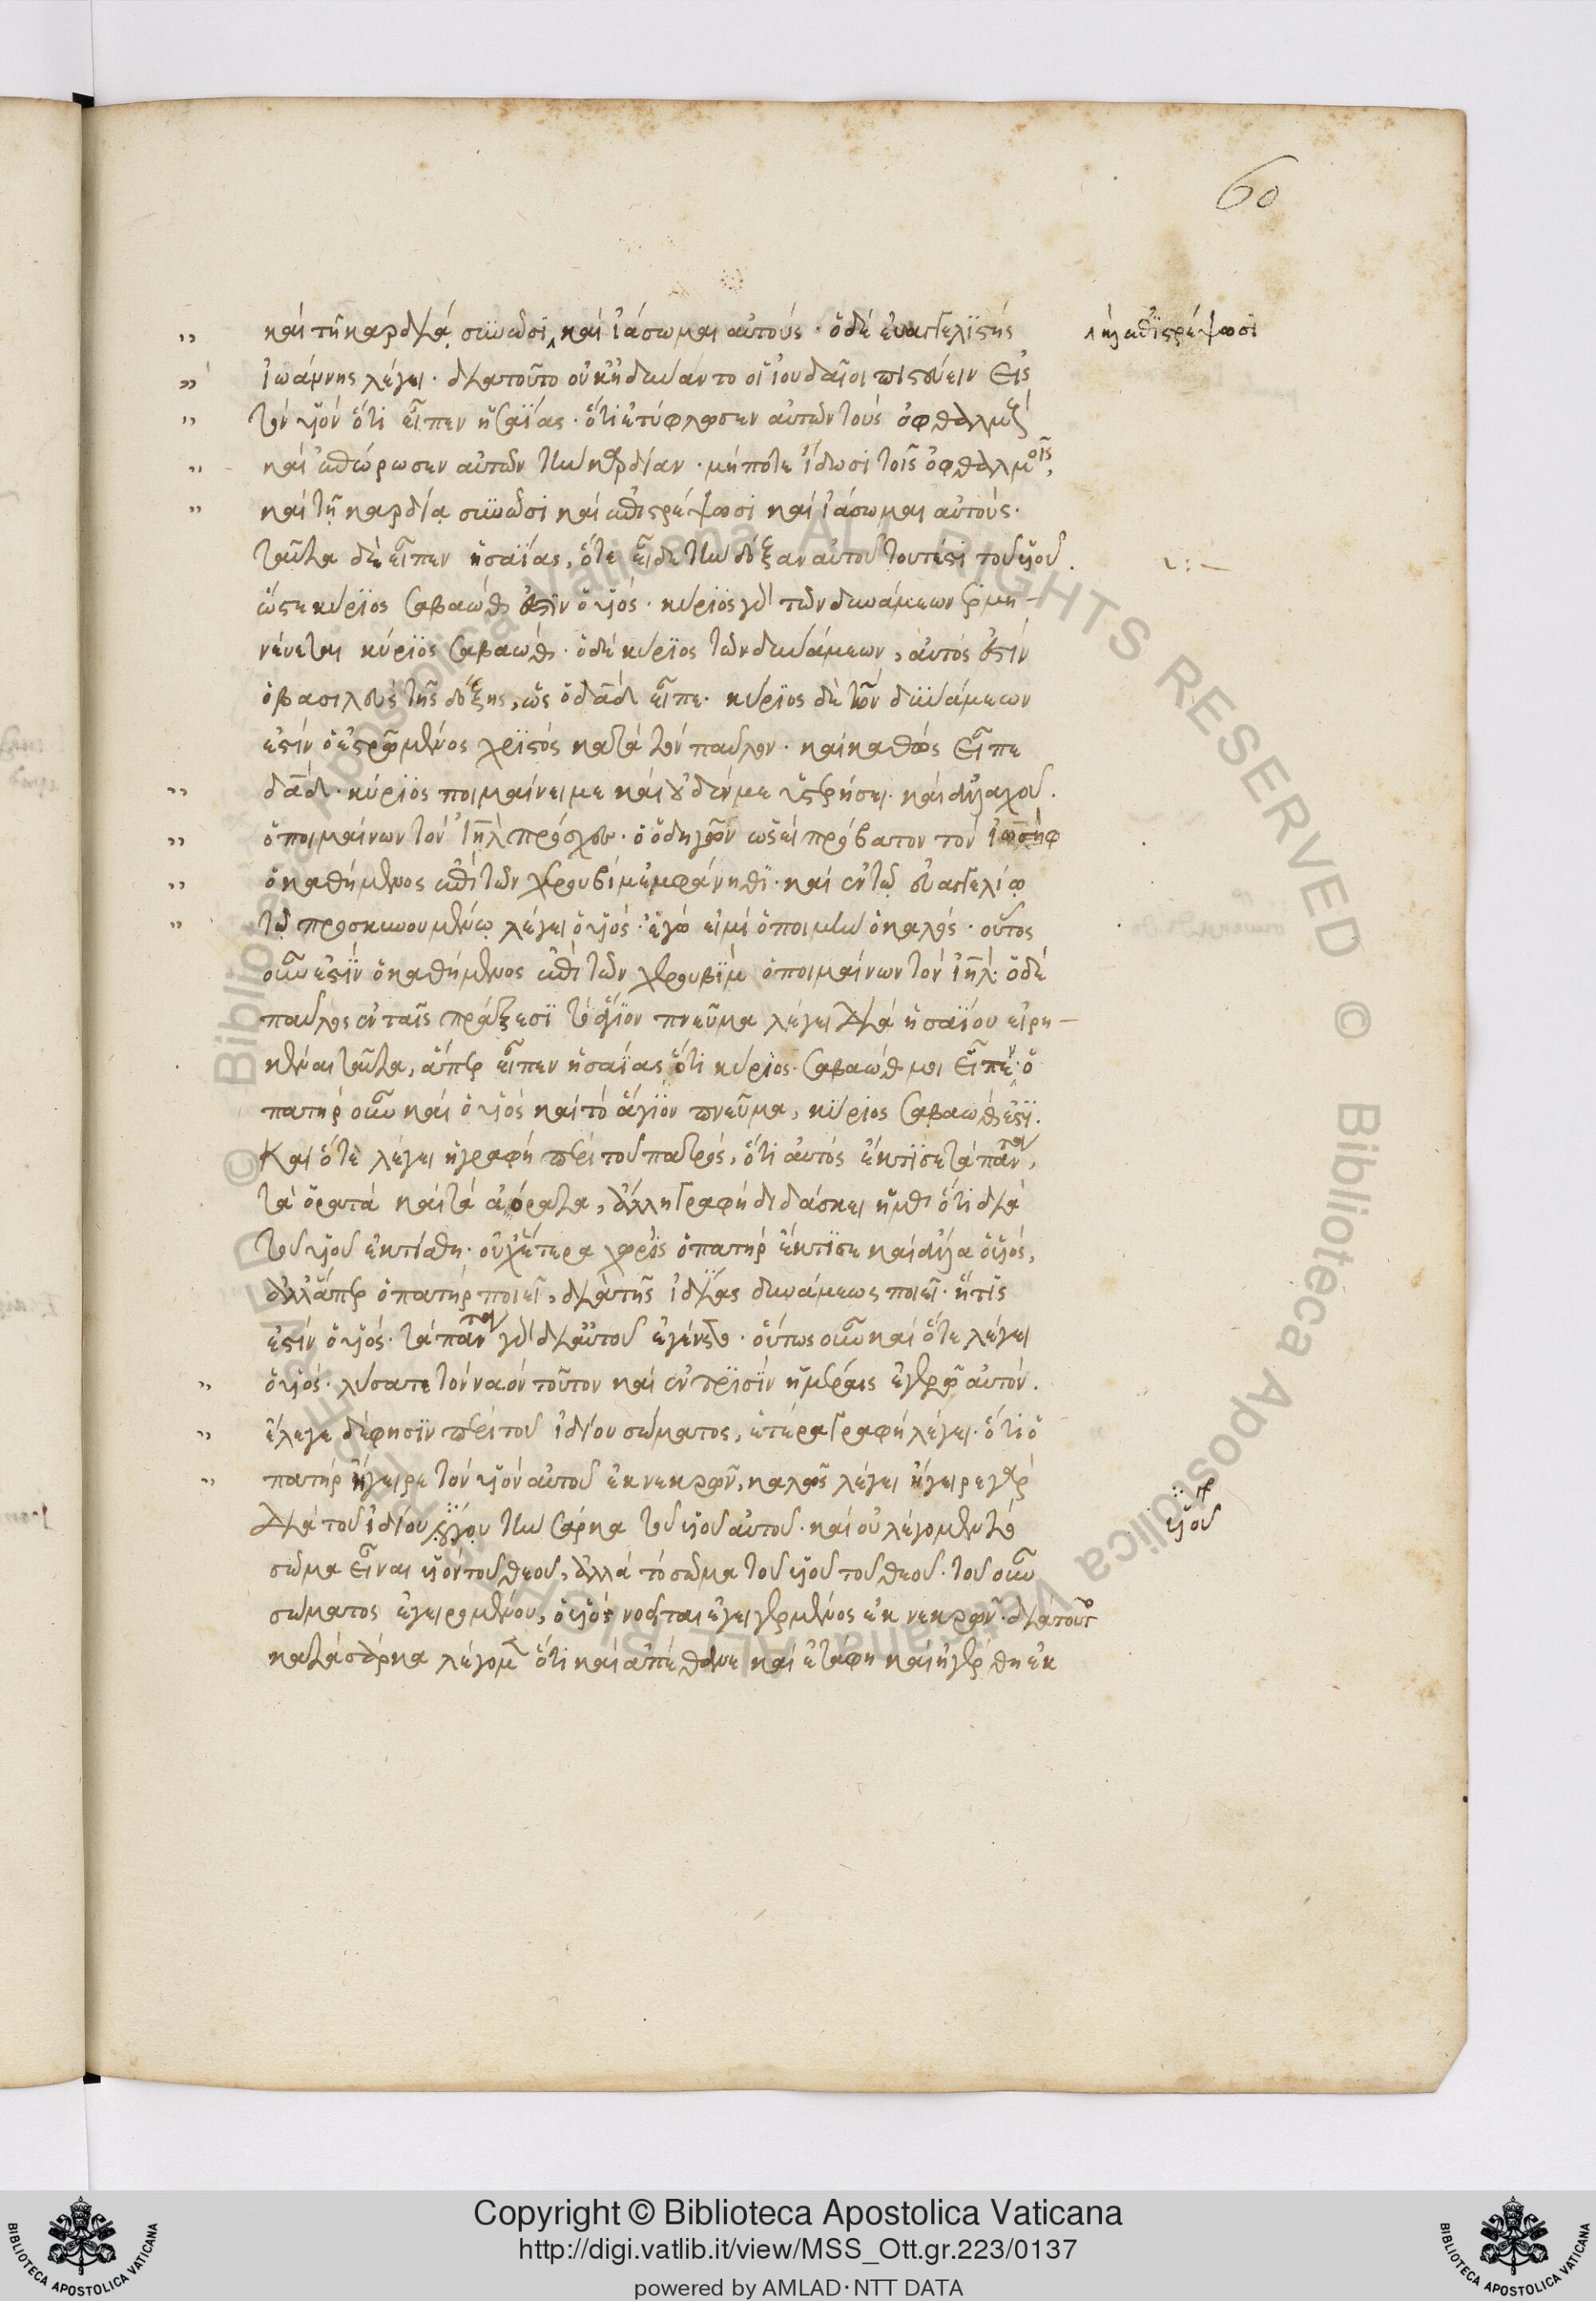 60
καὶ τῇ καρδίᾳ συνῶσι, καὶ ἰάσωμαι αὐτούς· ὁ δὲ εὐαγγελιστὴς
καὶ ἐπιστρέψωσι
Ἰωάννης λέγει· διατοῦτο οὐκ ἠδύναντο οἱ ἰουδαῖοι πιστεύειν εἰς
τὸν υἱόν ὅτι εἶπεν ἡσαΐας· ὅτι ἐτύφλωσεν αὐτῶν τοὺς ὀφθαλμούς
καὶ ἐπώρωσεν αὐτῶν τὴν καρδίαν· μήποτε ἴδωσι τοῖς ὀφθαλμοῖς,
καὶ τῇ καρδίᾳ συνῶσι καὶ ἐπιστρέψωσι καὶ ἰάσωμαι αὐτούς·
ταῦτα δὲ εἶπεν ἡσαΐας, ὅτε εἶδε τὴν δόξαν αὐτοῦ τουτέστι τοῦ υἱοῦ.
ὥστε κύριος σαβαώθ ἐστιν ὁ υἱός· κύριος γὰρ τῶν δυνάμεων ἑρμη-
νεύεται κύριος σαβαώθ· ὁ δὲ κύριος τῶν δυνάμεων, αὐτός ἐστιν
ὁ βασιλεὺς τῆς δόξης, ὡς ὁ δᾱδ εἶπε· κύριος δὲ τῶν δυνάμεων
ἐστὶν ὁ ἐσταυρωμένος χριστός κατὰ τὸν παῦλον· καὶ καθὼς εἶπε
δᾱδ· κύριος ποιμαίνει με καὶ οὐδέν με ὑστερήσει· καὶ ἀλλαχοῦ.
ὁ ποιμαίνων τὸν ἰηλ πρόσχες· ὁ ὁδηγῶν ὡσεὶ πρόβατον τὸν ἰωσήφ
ὁ καθήμενος ἐπὶ τῶν χερουβὶμ ἐμφάνηθι· καὶ ἐν τῷ εὐαγγελίῳ
τῷ προσκυνουμένῳ λέγει ὁ υἱός· ἐγώ εἰμι ὁ ποιμὴν ὁ καλός· οὗτος
οὖν ἐστὶν ὁ καθήμενος ἐπὶ τῶν χερουβὶμ ὁ ποιμαίνων τὸν ἰηλ· ὁ δὲ
παῦλος ἐν ταῖς πράξεσι τὸ ἅγιον πνεῦμα λέγει διὰ ἡσαΐου εἰρη-
κέναι ταῦτα, ἅπερ εἶπεν ἡσαΐας ὅτι κύριος σαβαώθ μοι εἶπεν· ὁ
πατὴρ οὖν καὶ ὁ υἱός καὶ τὸ ἅγιον πνεῦμα, κύριος σαβαώθ ἐστι.
Καὶ ὅτε λέγει ἡ γραφὴ περὶ τοῦ πατρός, ὅτι αὐτός ἔκτισε τὰ πάντα,
τὰ ὁρατὰ καὶ τὰ ἀόρατα, ἄλλη γραφὴ διδάσκει ἡμᾶς ὅτι διὰ
τοῦ υἱοῦ ἐκτίσθη· οὐχ ἕτερα χωρὶς ὁ πατὴρ ἔκτισε καὶ ἄλλα ὁ υἱός,
ἀλλ' ἅπερ ὁ πατὴρ ποιεῖ, διὰ τῆς ἰδίας δυνάμεως ποιεῖ· ἥτις
ἐστὶν ὁ υἱός· τὰ πάντα γὰρ δι' αὐτοῦ ἐγένετο· οὕτως οὖν καὶ ὅτε λέγει
ὁ υἱός· λύσατε τὸν ναὸν τοῦτον καὶ ἐν τρισὶν ἡμέραις ἐγερῶ αὐτόν.
ἔλεγε δέ φησιν περὶ τοῦ ἰδίου σώματος, ἑτέρα γραφὴ λέγει· ὅτι ὁ
πατὴρ ἤγειρε τὸν υἱὸν αὐτοῦ ἐκ νεκρῶν, καλῶς λέγει ἤγειρε γὰρ
διὰ τοῦ ἰδίου λόγου τὴν σάρκα τοῦ υἱοῦ αὐτοῦ· καὶ οὐ λέγομεν τὸ
υἱοῦ
σῶμα εἶναι υἱὸν τοῦ θεοῦ, ἀλλὰ τὸ σῶμα τοῦ υἱοῦ τοῦ θεοῦ· τοῦ οὖν
σώματος ἐγειρομένου, ὁ υἱὸς νοεῖται ἐγειγερμένος ἐκ νεκρῶν· διὰ τοῦτο
κατὰ σάρκα λέγομεν ὅτι καὶ ἀπέθανε καὶ ἐτάφη καὶ ἠγέρθη ἐκ
Copyright © Biblioteca Apostolica Vaticana
http://digi.vatlib.it/view/MSS_Ott.gr.223/0137
powered by AMLAD·NTT DATA